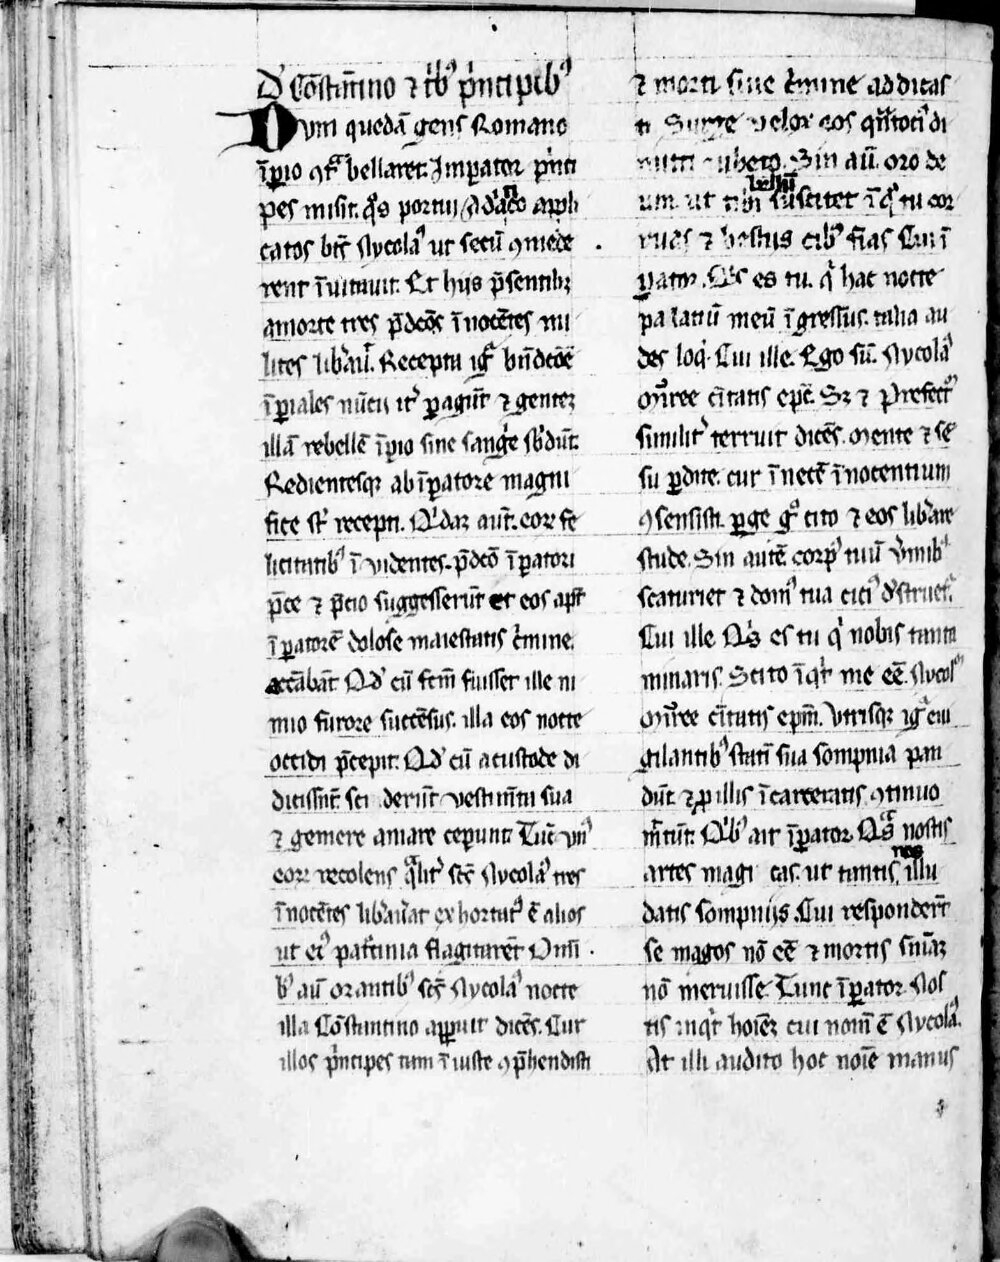 D' Co̅sta̅tino ⁊ trib᷒ p̍ncipib᷒
Dum queda̅ gens Romano
i̅perio ꝯt᷑ bellaret. Imperator p̍nci
pes misit. q̍s portui Adriatico appli
catos bt̅s Nycola᷒ ut secu̅ ꝯmede
rent i̅uitauit. Et hijs p̅sentib᷒
a morte tres p̅dc̅os i̅noce̅tes mi
lites lib̍auit. Recepta ig̍ bn̅dcc̅o̅e
i̅periales nu̅cii it̍ peragu̅t ⁊ gentez
illa̅ rebelle̅ i̅perio sine sangͥe sb̍du̅t.
Redientesqꝫ ab i̅peratore magni
fice st̍ recepti. Qͥdaz aut̅. eorꝝ fe
licitatib᷒ i̅uidentes. p̅dc̅o i̅peratori
p̅ce ⁊ p̅cio suggesseru̅t et eos apt̍
i̅peratore̅ dolose maiestatis c̍mine
accu̅saba̅t Qd̍ cu̅ fc̅m fuisset ille ni
mio furore succe̅sus. illa eos nocte
occidi p̅cepit. Qd̍ cu̅ a custode di
dicissn̅t. sci deru̅t vestim̅ta sua
⁊ gemere amare ceperunt Tu̅c vn᷒
eorꝝ recolens qͣlit̍ sc̅s Nycola᷒ tres
i̅noce̅tes lib̍au̍at exhortat᷒ e̅ alios
ut ei᷒ pat̍cinia flagitare̅t Om̅i
b᷒ au̅ orantib᷒ sc̅s Nycola᷒ nocte
illa Co̅stantino apparuit dice̅s. Cur
illos p̍ncipes tam i̅iuste ꝯp̍hendisti
⁊ morti sine c̍mine addicas
ti Surge velox eos qn̅toci᷒ di
mitti iubeto. Sin au̅. oro de
um. ut tibi bellu̅ suscitet i̅ qͦ tu cor
ruas ⁊ bestiis cib᷒ fias Cui i̅
perator. Qͥs es tu. qͥ hac nocte
palatiu̅ meu̅ i̅gressus. talia au
des loqͥ. Cui ille. Ego su̅. Nycola᷒
Myree ci̅tatis ep̅c̅. Sz ⁊ prefectu̅
similit̍ terruit dice̅s. Mente ⁊ se̅
su perdite. cur i̅ nece̅ i̅nocentium
ꝯsensisti. perge gͦ cito ⁊ eos lib̍are
stude. Sin aute̅ corp᷒ tuu̅ v̍mib᷒
scaturiet ⁊ dom᷒ tua citi᷒ d̍struet̍.
Cui ille Qͥs es tu qͥ nobis tanta
minaris. Scito i̅qͥt me ee̅. Nycola̅
Myree ci̅tatis epm̅. Vtrisqꝫ ig̍ eui
gilantib᷒ stati̅ sua sompnia pan
du̅t. ⁊ pro illis i̅carceratis ꝯtinuo
mi̅tu̅t. Qͥb᷒ ait i̅perator Qͣs nostis
artes magi cas. ut tantis nos illu
datis sompnijs. Cui responderu̅t
se magos no̅ ee̅ ⁊ mortis sn̅iaꝫ
no̅ meruisse. Tunc i̅perator. Nos
tis inqͥt hoie̅ꝫ cui nom̅ e̅ Nycola᷒.
At illi audito hoc noi̅e manus